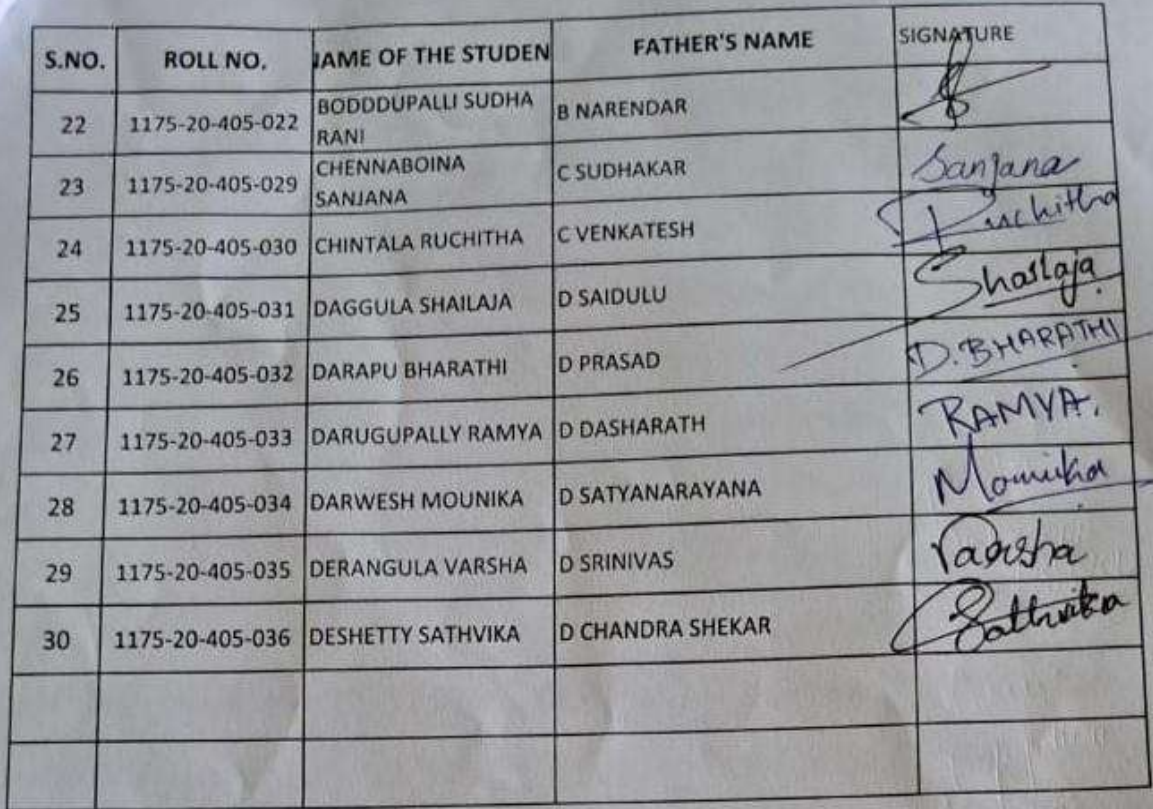 S.NO. ROLL NO. NAME OF THE STUDEN FATHER'S NAME SIGNATURE
22 1175-20-405-022 BODDDUPALLI SUDHA B NARENDAR
RANI
23 1175-20-405-029 CHENNABOINA C SUDHAKAR Sanjana
SANJANA
24 1175-20-405-030 CHINTALA RUCHITHA C VENKATESH Ruchitha
25 1175-20-405-031 DAGGULA SHAILAJA D SAIDULU Shailaja
26 1175-20-405-032 DARAPU BHARATHI D PRASAD D.BHARATHI
27 1175-20-405-033 DARUGUPALLY RAMYA D DASHARATH RAMYA.
28 1175-20-405-034 DARWESH MOUNIKA D SATYANARAYANA Mounika
29 1175-20-405-035 DERANGULA VARSHA D SRINIVAS Varsha
30 1175-20-405-036 DESHETTY SATHVIKA D CHANDRA SHEKAR Sathvika